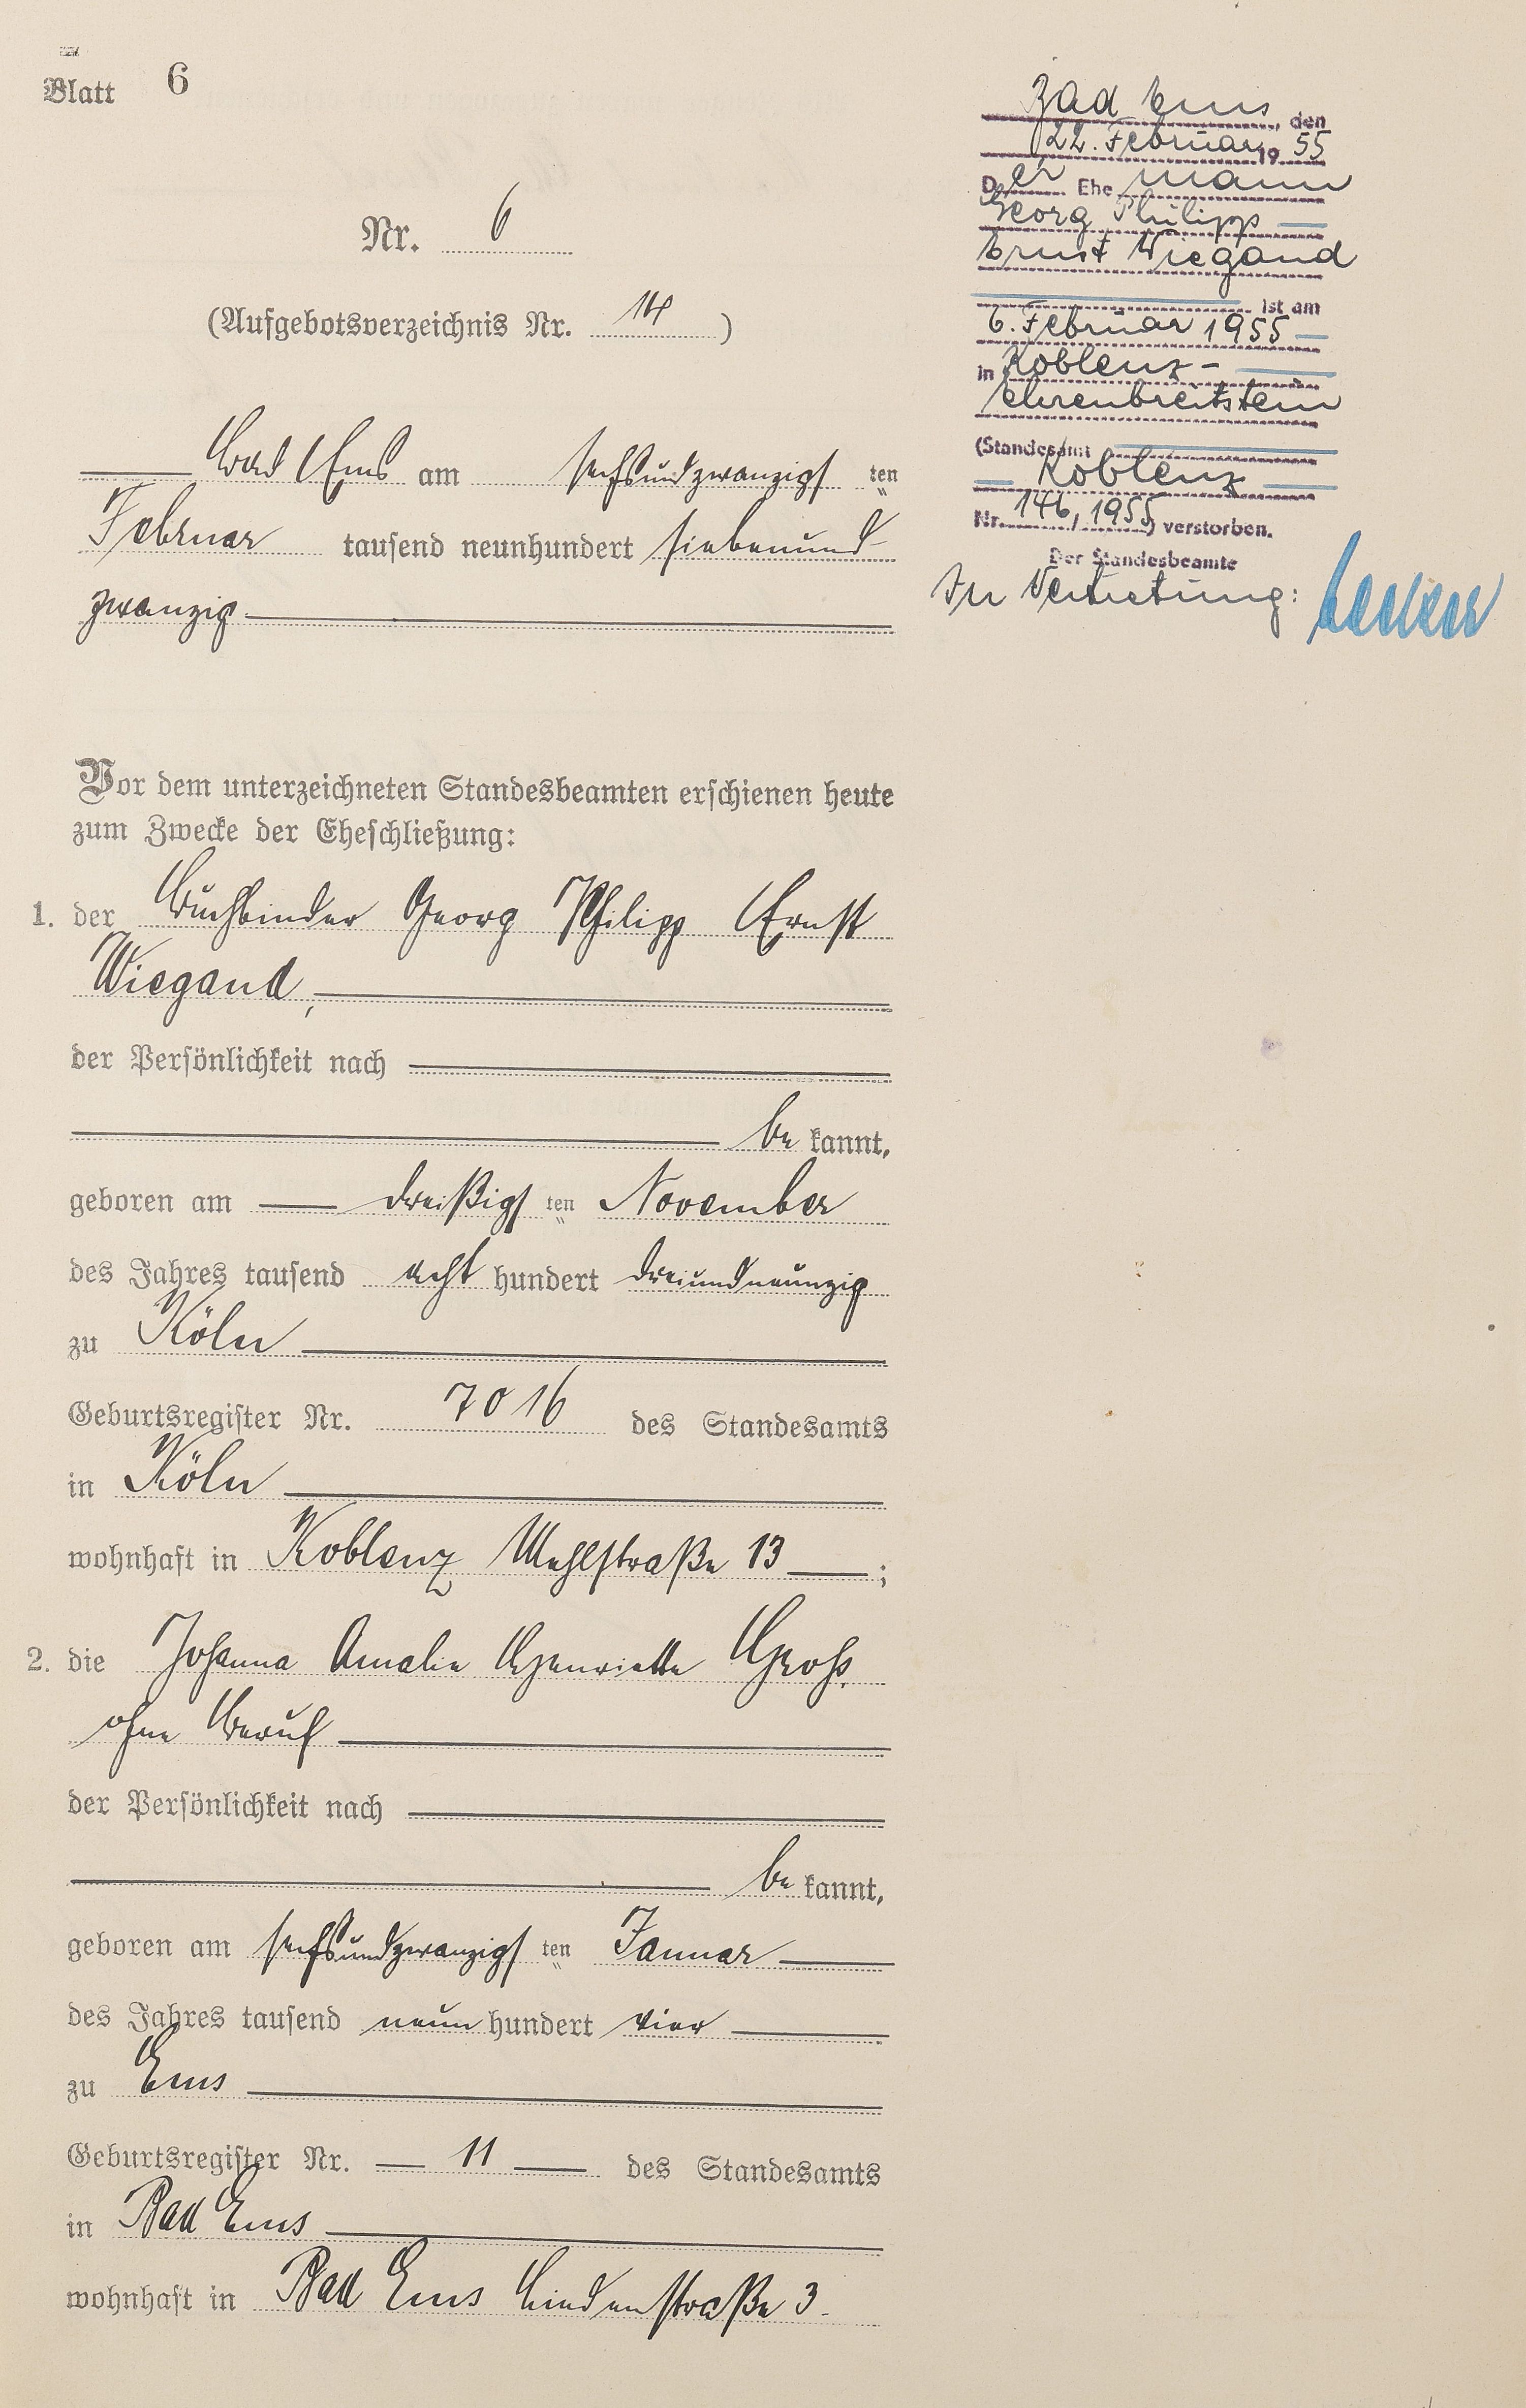 Blatt 6
Nr. 6
(Aufgebotsverzeichnis Nr. 14)
Bad Ems am sechsundzwanzigs ten
Februar tausend neunhundert siebenund-
zwanzig
Vor dem unterzeichneten Standesbeamten erschienen heute
zum Zwecke der Eheschließung:
1. der Buchbinder Georg Philipp Ernst
Wiegand,
der Persönlichkeit nach
be kannt,
geboren am dreißigs ten November
des Jahres tausend acht hundert dreiundneunzig
zu Köln
Geburtsregister Nr. 7016 des Standesamts
in Köln
wohnhaft in Koblenz 13;
2. die Johanna Amalie Henriette Groß,
ohne Beruf
der Persönlichkeit nach
be kannt,
geboren am sechsundzwanzigs ten Januar
des Jahres tausend neun hundert vier
zu Ems
Geburtsregister Nr. 11 des Standesamts
in Bad Ems
wohnhaft in Bad Ems Lindenstraße 3.
Bad Ems, den
22. Februar 19 55
Der Ehe mann
Georg Philipp
Ernst Wiegand
ist am
6. Februar 1955
in Koblenz-
Ehrenbreitstein
(Standesamt
Koblenz
Nr. 146/1955) verstorben.
Der Standesbeamte
In Vertretung: